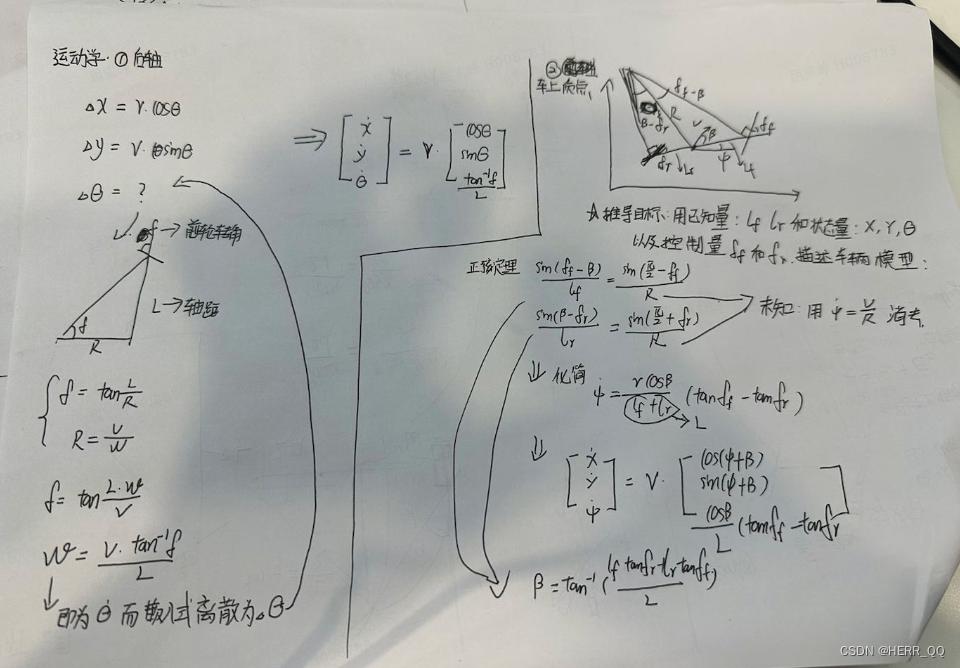 运动学·① 后轴
Δx = v·cosθ
Δy = v·sinθ
Δθ = ?
f → 前轮转角
L → 轴距
f
R
f = tan L/R
R = v/w
f = tan L·w/v
w = v·tan⁻¹f / L
即为 θ̇ 而 离散为 Δθ
⇒ [ẋ ẏ θ̇] = v·[cosθ sinθ tan⁻¹f/L]
②
车上质点
f_f-β
β-f_r
R
v
β
f_f
f_r
l_r
ψ
l_f
推导目标: 用已知量: l_f l_r 和状态量: X, Y, θ
以及控制量 f_f 和 f_r 描述车辆模型:
正弦定理 sin(f_f-β)/l_f = sin(π/2-f_f)/R
sin(β-f_r)/l_r = sin(π/2+f_r)/R
未知: 用 ψ̇ = v/R 消去
⇓ 化简
ψ̇ = v cosβ/(l_f+l_r) (tanf_f - tanf_r)
L
⇓
[ẋ ẏ ψ̇] = v·[cos(ψ+β) sin(ψ+β) cosβ/L (tanf_f - tanf_r]
β = tan⁻¹(l_f tanf_r+l_r tanf_f / L)
CSDN @HERR_QQ